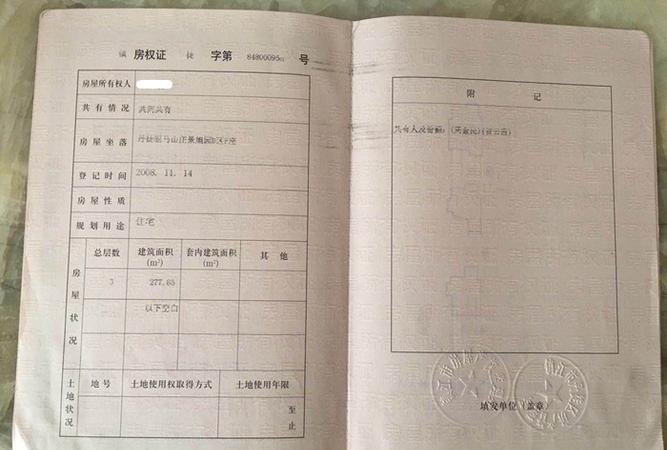 镇 房权证 徒 字第 号
房屋所有权人
共有情况 共同共有
房屋坐落
登记时间 2008. 11. 14
房屋性质
规划用途 住宅
房屋状况
总层数 建筑面积(m²) 套内建筑面积(m²) 其他
3 277.85
以下空白
土地状况
地号 土地使用权取得方式 土地使用年限
至
止
附 记
共有人及份额:
填发单位(盖章)